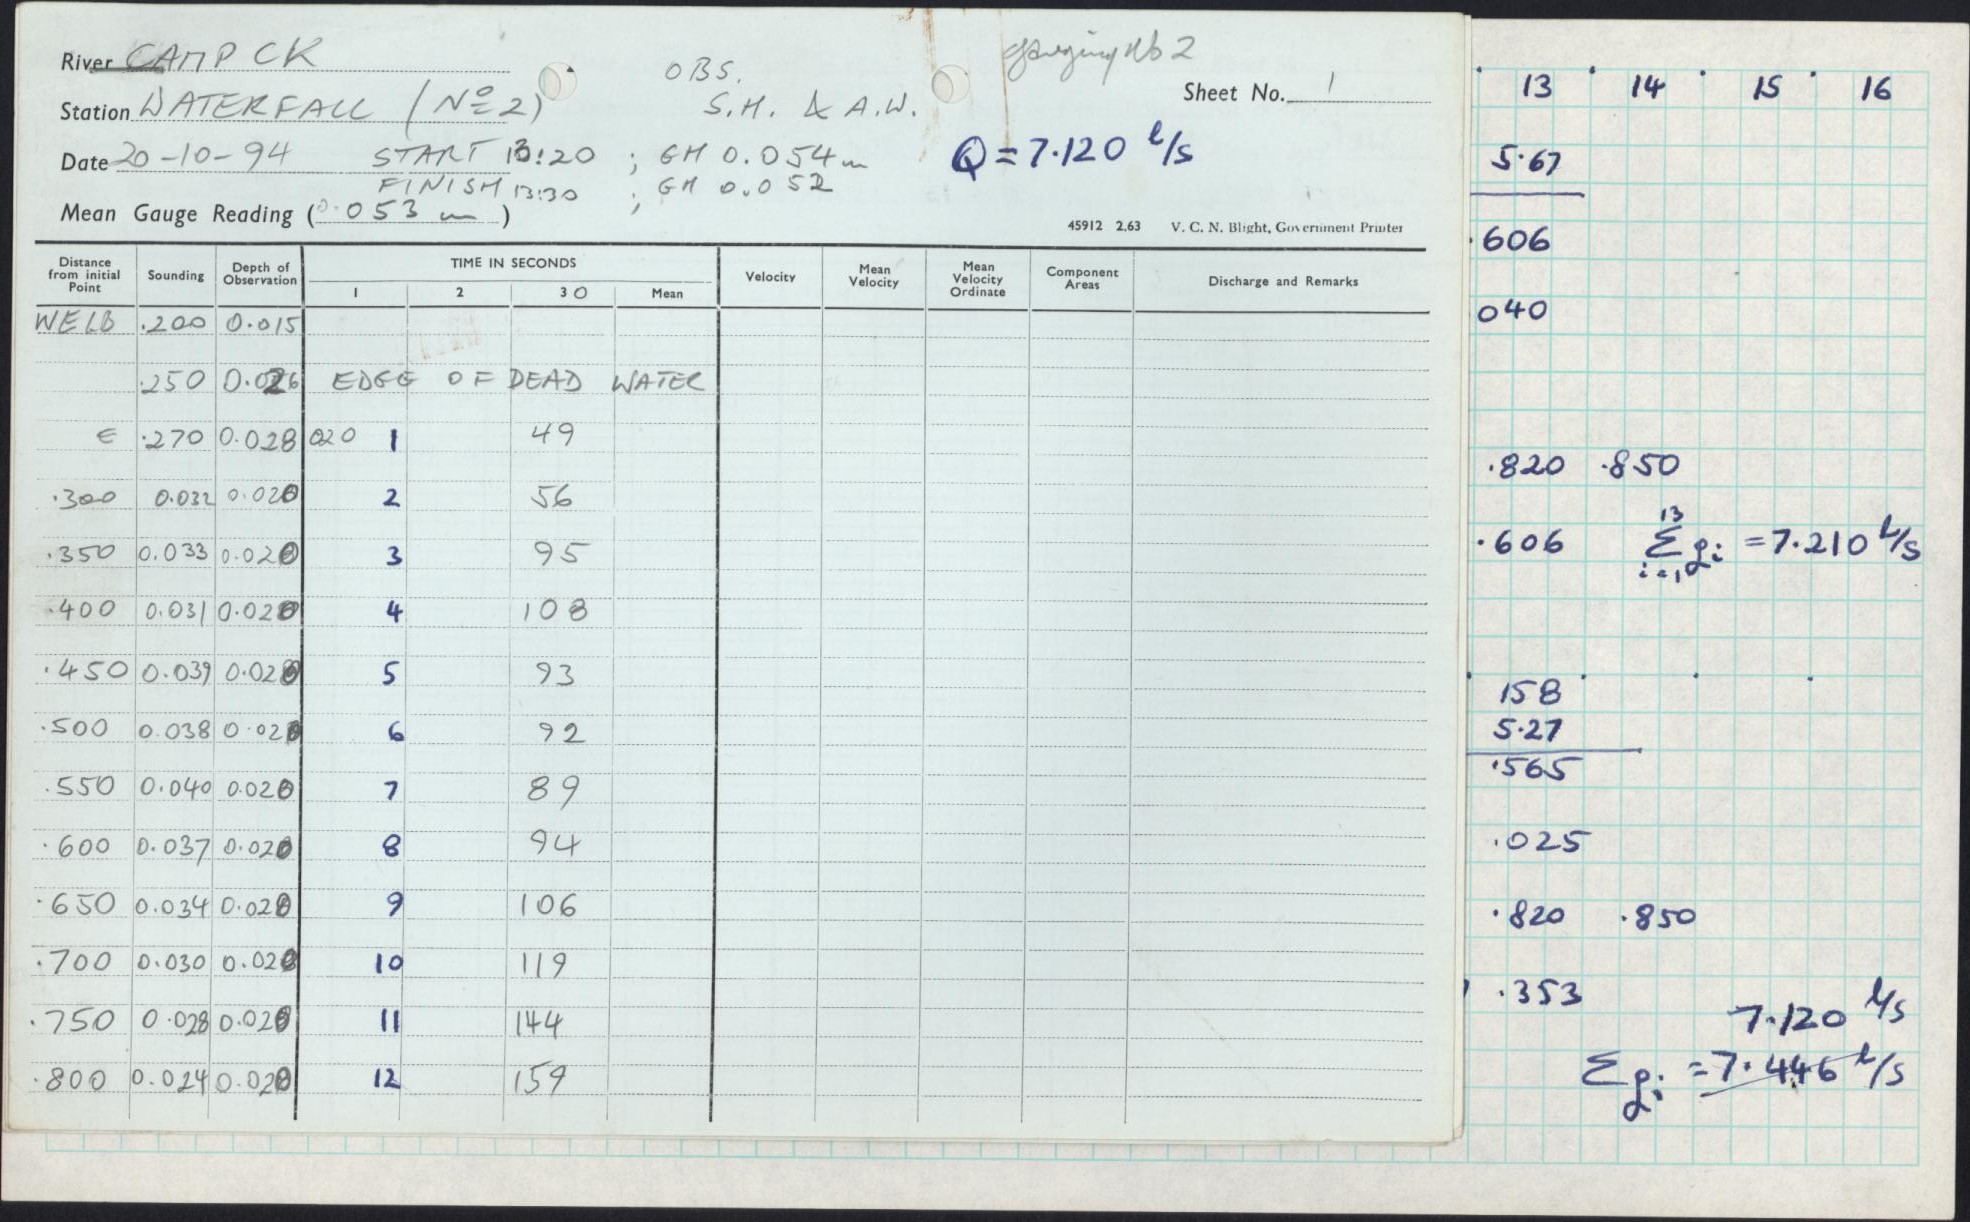 River CAMP CK
OBS.
gauging No 2
Station WATERFALL (Nº 2)
S.H. & A.W.
Sheet No. 1
Date 20-10-94 START 13:20 ; GH 0.054m
Q = 7.120 l/s
FINISH 13:30 ; GH 0.052
Mean Gauge Reading (0.053 m)
45912 2.63 V. C. N. Blight, Government Printer
Distance from initial Point Sounding Depth of Observation TIME IN SECONDS Velocity Mean Velocity Mean Velocity Ordinate Component Areas Discharge and Remarks
1 2 3 0 Mean
WELB .200 0.015
.250 0.026 EDGE OF DEAD WATER
E .270 0.028 020 1 49
.300 0.032 0.020 2 56
.350 0.033 0.020 3 95
.400 0.031 0.020 4 108
.450 0.039 0.020 5 93
.500 0.038 0.020 6 92
.550 0.040 0.020 7 89
.600 0.037 0.020 8 94
.650 0.034 0.020 9 106
.700 0.030 0.020 10 119
.750 0.028 0.020 11 144
.800 0.024 0.020 12 159
13 14 15 16
5.67
.606
040
.820 .850
.606
13
Σ qi = 7.210 l/s
i=1
158
5.27
.565
.025
.820 .850
.353
7.120 l/s
Σqi = 7.446 l/s